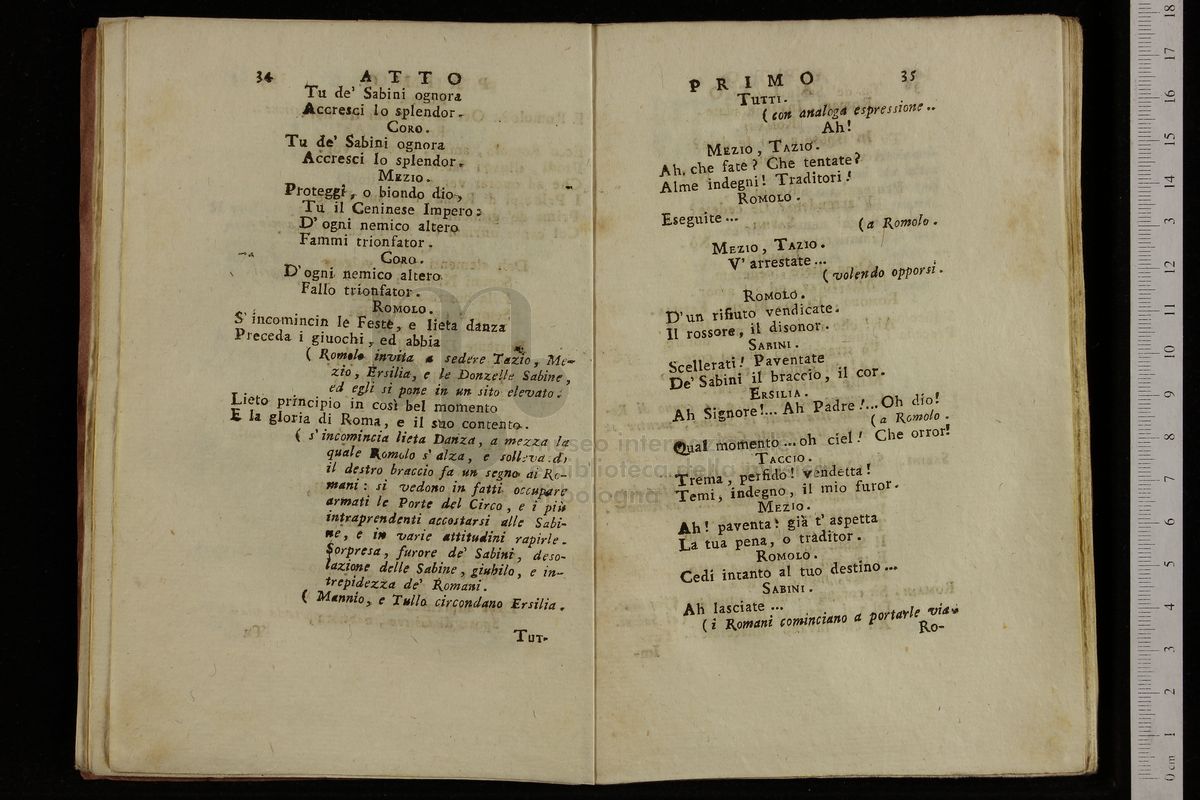 34 ATTO
Tu de' Sabini ognora
Accresci lo splendor.
CORO.
Tu de' Sabini ognora
Accresci lo splendor.
MEZIO.
Proteggi, o biondo dio,
Tu il Ceninese Impero:
D' ogni nemico altero
Fammi trionfator.
CORO.
D' ogni nemico altero
Fallo trionfator.
ROMOLO.
S' incomincin le Feste, e lieta danza
Preceda i giuochi, ed abbia
( Romolo invita a sedere Tazio, Me-
zio, Ersilia, e le Donzelle Sabine,
ed egli si pone in un sito elevato.
Lieto principio in così bel momento
E la gloria di Roma, e il suo contento.
( s' incomincia lieta Danza, a mezza la
quale Romolo s' alza, e sollevando
il destro braccio fa un segno ai Ro-
mani: si vedono in fatti occupare
armati le Porte del Circo, e i più
intraprendenti accostarsi alle Sabi-
ne, e in varie attitudini rapirle.
Sorpresa, furore de' Sabini, deso-
lazione delle Sabine, giubilo, e in-
trepidezza de' Romani.
( Mannio, e Tullo circondano Ersilia.
TUT-
PRIMO 35
TUTTI.
( con analoga espressione..
Ah!
MEZIO, TAZIO.
Ah, che fate? Che tentate?
Alme indegni! Traditori!
ROMOLO.
Eseguite...
(a Romolo.
MEZIO, TAZIO.
V' arrestate...
( volendo opporsi.
ROMOLO.
D' un rifiuto vendicate
Il rossore, il disonor.
SABINI.
Scellerati! Paventate
De' Sabini il braccio, il cor.
ERSILIA.
Ah Signore!... Ah Padre!... Oh dio!
(a Romolo.
Qual momento... oh ciel! Che orror!
TACCIO.
Trema, perfido! vendetta!
Temi, indegno, il mio furor.
MEZIO.
Ah! paventa! già t' aspetta
La tua pena, o traditor.
ROMOLO.
Cedi intanto al tuo destino...
SABINI.
Ah lasciate...
( i Romani cominciano a portarle via.
Ro-
biblioteca della
bologna
0 cm 1 2 3 4 5 6 7 8 9 10 11 12 13 14 15 16 17 18